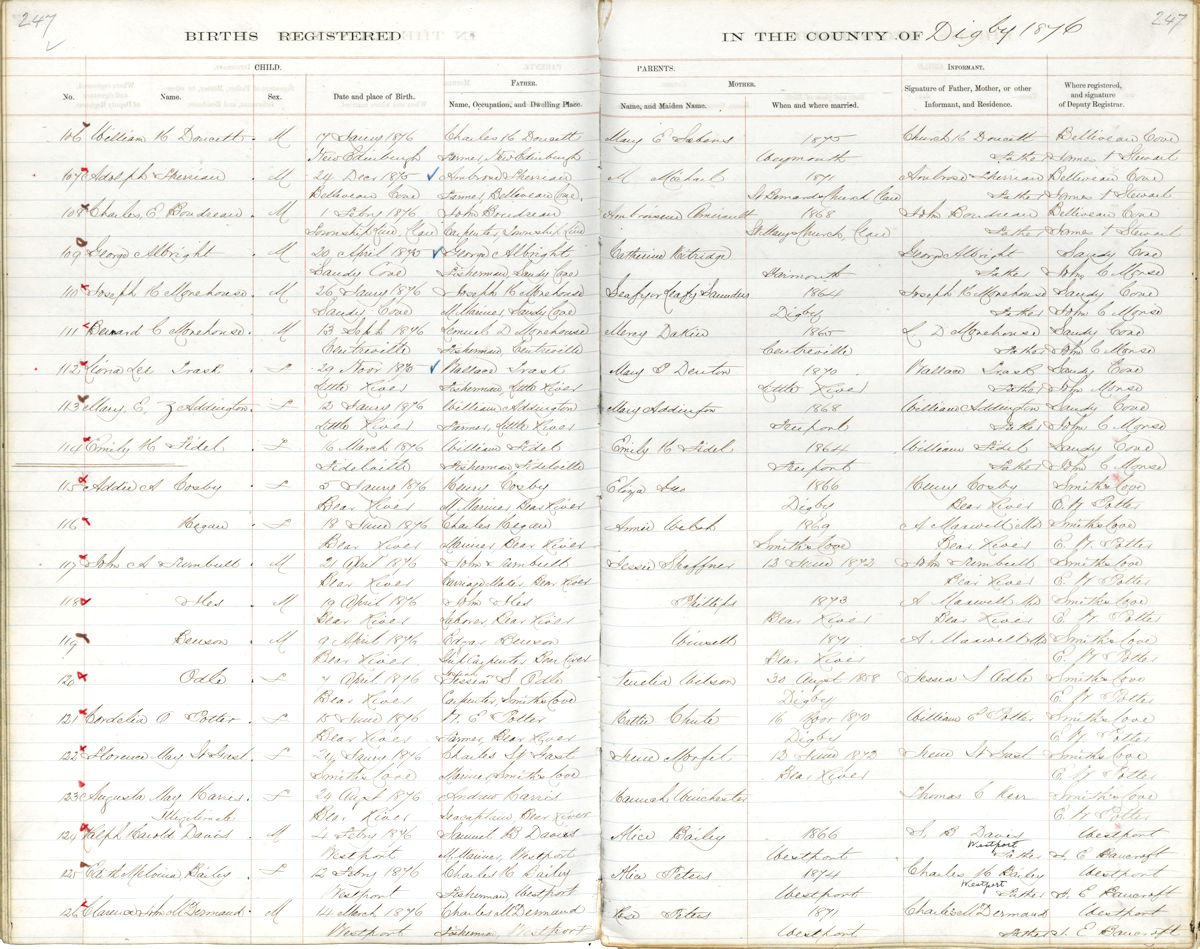 247
BIRTHS REGISTERED
IN THE COUNTY OF Digby 1876
247
CHILD.
PARENTS.
INFORMANT.
FATHER.
MOTHER.
No. Name. Sex. Date and place of Birth. Name, Occupation, and Dwelling Place. Name, and Maiden Name. When and where married. Signature of Father, Mother, or other Informant, and Residence. Where registered, and signature of Deputy Registrar.
106 William H Doucett M 17 Jany 1876 Charles H Doucett Mary E 1875 Church H Doucett Belliveau Cove
New Edinburgh Farmer, New Edinburgh Weymouth Father James F Stewart
107 Adolph Therriau M 24 Decr 1875 Ambrose Therriau M Michael 1871 Ambrose Therriau Belliveau Cove
Belliveau Cove Farmer, Belliveau Cove St Bernards Church Clare Father James F Stewart
108 Charles E Boudreau M 1 Febry 1876 John Boudreau Ambroisene Amirault 1868 John Boudreau Belliveau Cove
Township Clare, Clare Carpenter, Township Clare St Marys Church, Clare Father James F Stewart
109 George Albright M 20 April 1875 George Albright Catherine Kitridge George Albright Sandy Cove
Sandy Cove Fisherman, Sandy Cove Yarmouth Father John C Morse
110 Joseph H Morehouse M 26 Jany 1876 Joseph H Morehouse Saunders 1864 Joseph H Morehouse Sandy Cove
Sandy Cove M Mariner, Sandy Cove Digby Father John C Morse
111 Bernard C Morehouse M 13 Seph 1876 Lemuel D Morehouse Mercy Dakin 1865 L D Morehouse Sandy Cove
Centreville Fisherman, Centreville Centreville Father John C Morse
112 Lee Trask F 29 Novr 1875 Wallace Trask Mary E Denton 1870 Wallace Trask Sandy Cove
Little River Fisherman, Little River Little River Father John Morse
113 Mary E Z Addington F 12 Jany 1876 William Addington Mary Addington 1868 William Addington Sandy Cove
Little River Farmer, Little River Freeport Father John C Morse
114 Emily H Tidel F 16 March 1876 William Tidel Emily H Tidel 1864 William Tidel Sandy Cove
Tidelville Fisherman Tidelville Freeport Father John C Morse
115 Addie A Cosby F 3 Jany 1876 Henry Cosby Eliza 1866 Henry Cosby Smiths Cove
Bear River M Mariner, Bear River Digby Bear River E W Potter
116 Hegan F 18 June 1876 Charles Hegan Annie Welsh 1869 A Maxwell MD Smiths Cove
Bear River Mariner, Bear River Smiths Cove Bear River E W Potter
117 John A Turnbull M 21 April 1876 John Turnbull Jessie Shaffner 13 June 1872 John Turnbull Smiths Cove
Bear River Carriage Maker Bear River Bear River E W Potter
118 Iles M 19 April 1876 John Iles Phillips 1873 A Maxwell MD Smiths Cove
Bear River Laborer Bear River Bear River Bear River E W Potter
119 Benson M 9 April 1876 Edgar Benson 1871 A Maxwell MD Smiths Cove
Bear River Ship Carpenter Bear River Bear River E W Potter
120 Odle F 7 April 1876 S Odle Wilson 30 Augst 1858 S Odle Smiths Cove
Bear River Carpenter, Smiths Cove Digby E W Potter
121 Cordelia O Potter F 15 June 1876 W E Potter Hattie Chute 16 Novr 1870 William E Potter Smiths Cove
Bear River Farmer, Bear River Digby E W Potter
122 Florence May F 24 Jany 1876 Charles Irene Morfit 12 June 1872 Irene Smiths Cove
Smiths Cove Mariner, Smiths Cove Bear River E W Potter
123 Augusta May Harris F 24 Augst 1876 Andrew Harris Hannah Winchester Thomas C Kerr Smiths Cove
Illegitimate Bear River Bear River E W Potter
124 Ralph Harold Davis M 4 Febry 1876 Samuel B Davis Alice Bailey 1866 S. B Davis Westport
Westport M Mariner, Westport Westport Westport Father E Bancroft
125 Bailey F 12 Febry 1876 Charles H Bailey Alice Peters 1874 Charles H Bailey Westport
Westport Fisherman Westport Westport Westport Father E Bancroft
126 Clarence John McDermand M 14 March 1876 Charles McDermand Rose Peters 1871 Charles McDermand Westport
Westport Fisherman, Westport Westport Father E Bancroft